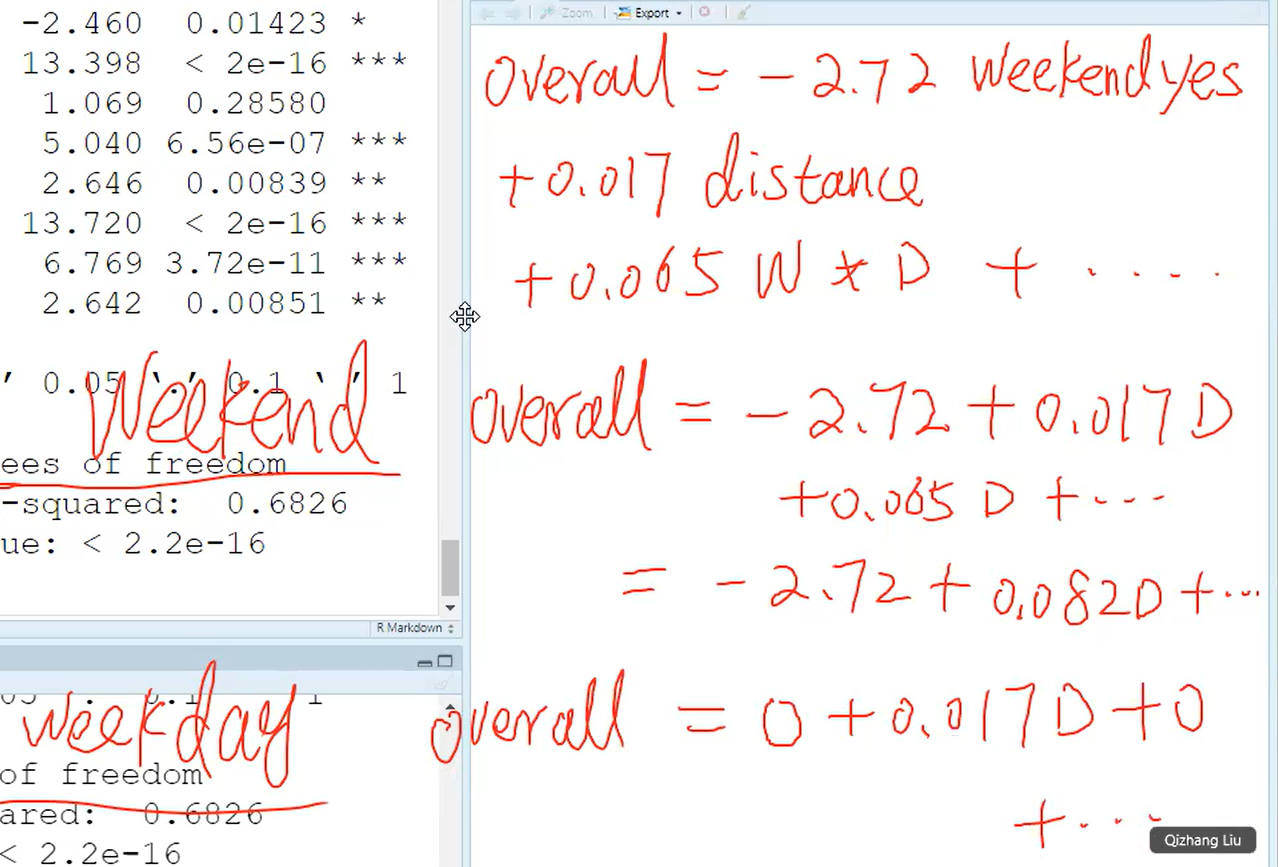 Zoom Export
-2.460 0.01423 *
13.398 < 2e-16 ***
1.069 0.28580
5.040 6.56e-07 ***
2.646 0.00839 **
13.720 < 2e-16 ***
6.769 3.72e-11 ***
2.642 0.00851 **
’ 0.05 ‘.’ 0.1 ‘ ’ 1
Weekend
ees of freedom
-squared: 0.6826
ue: < 2.2e-16
R Markdown
weekday
of freedom
ared: 0.6826
< 2.2e-16
overall = -2.72 Weekendyes
+0.017 distance
+0.065 W * D + ....
overall = -2.72 + 0.017 D
+0.065 D + ...
= -2.72 + 0.082D + ...
overall = 0 + 0.017D + 0
+ ...
Qizhang Liu